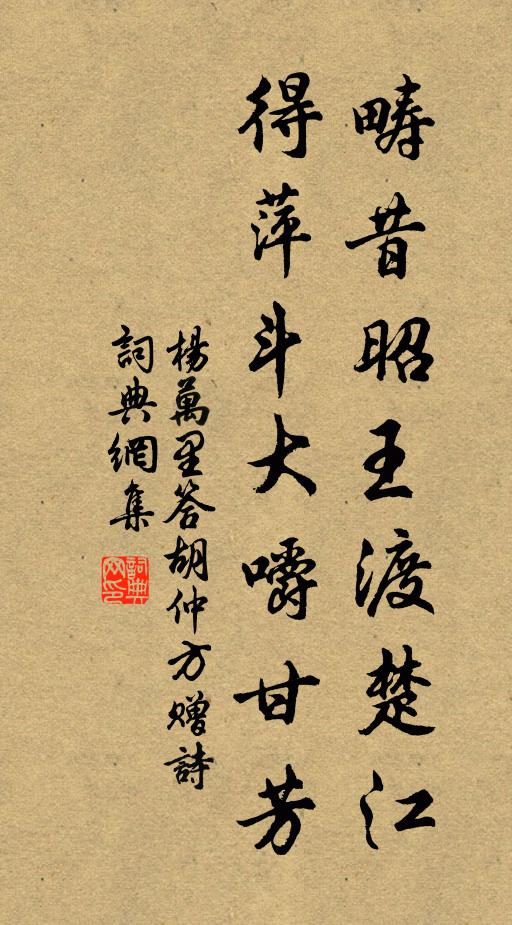 疇昔昭王渡楚江
得萍斗大嚼甘芳
楊萬里答胡仲方贈詩
詞典網集
詞典網印